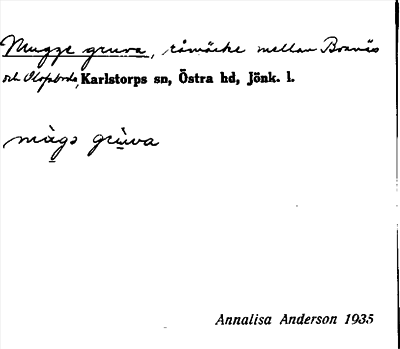 Mugge gruva, råmärke mellan Boanäs
och Olofsboda, Karlstorps sn, Östra hd, Jönk. l.
mùgs grùva
Annalisa Anderson 1935